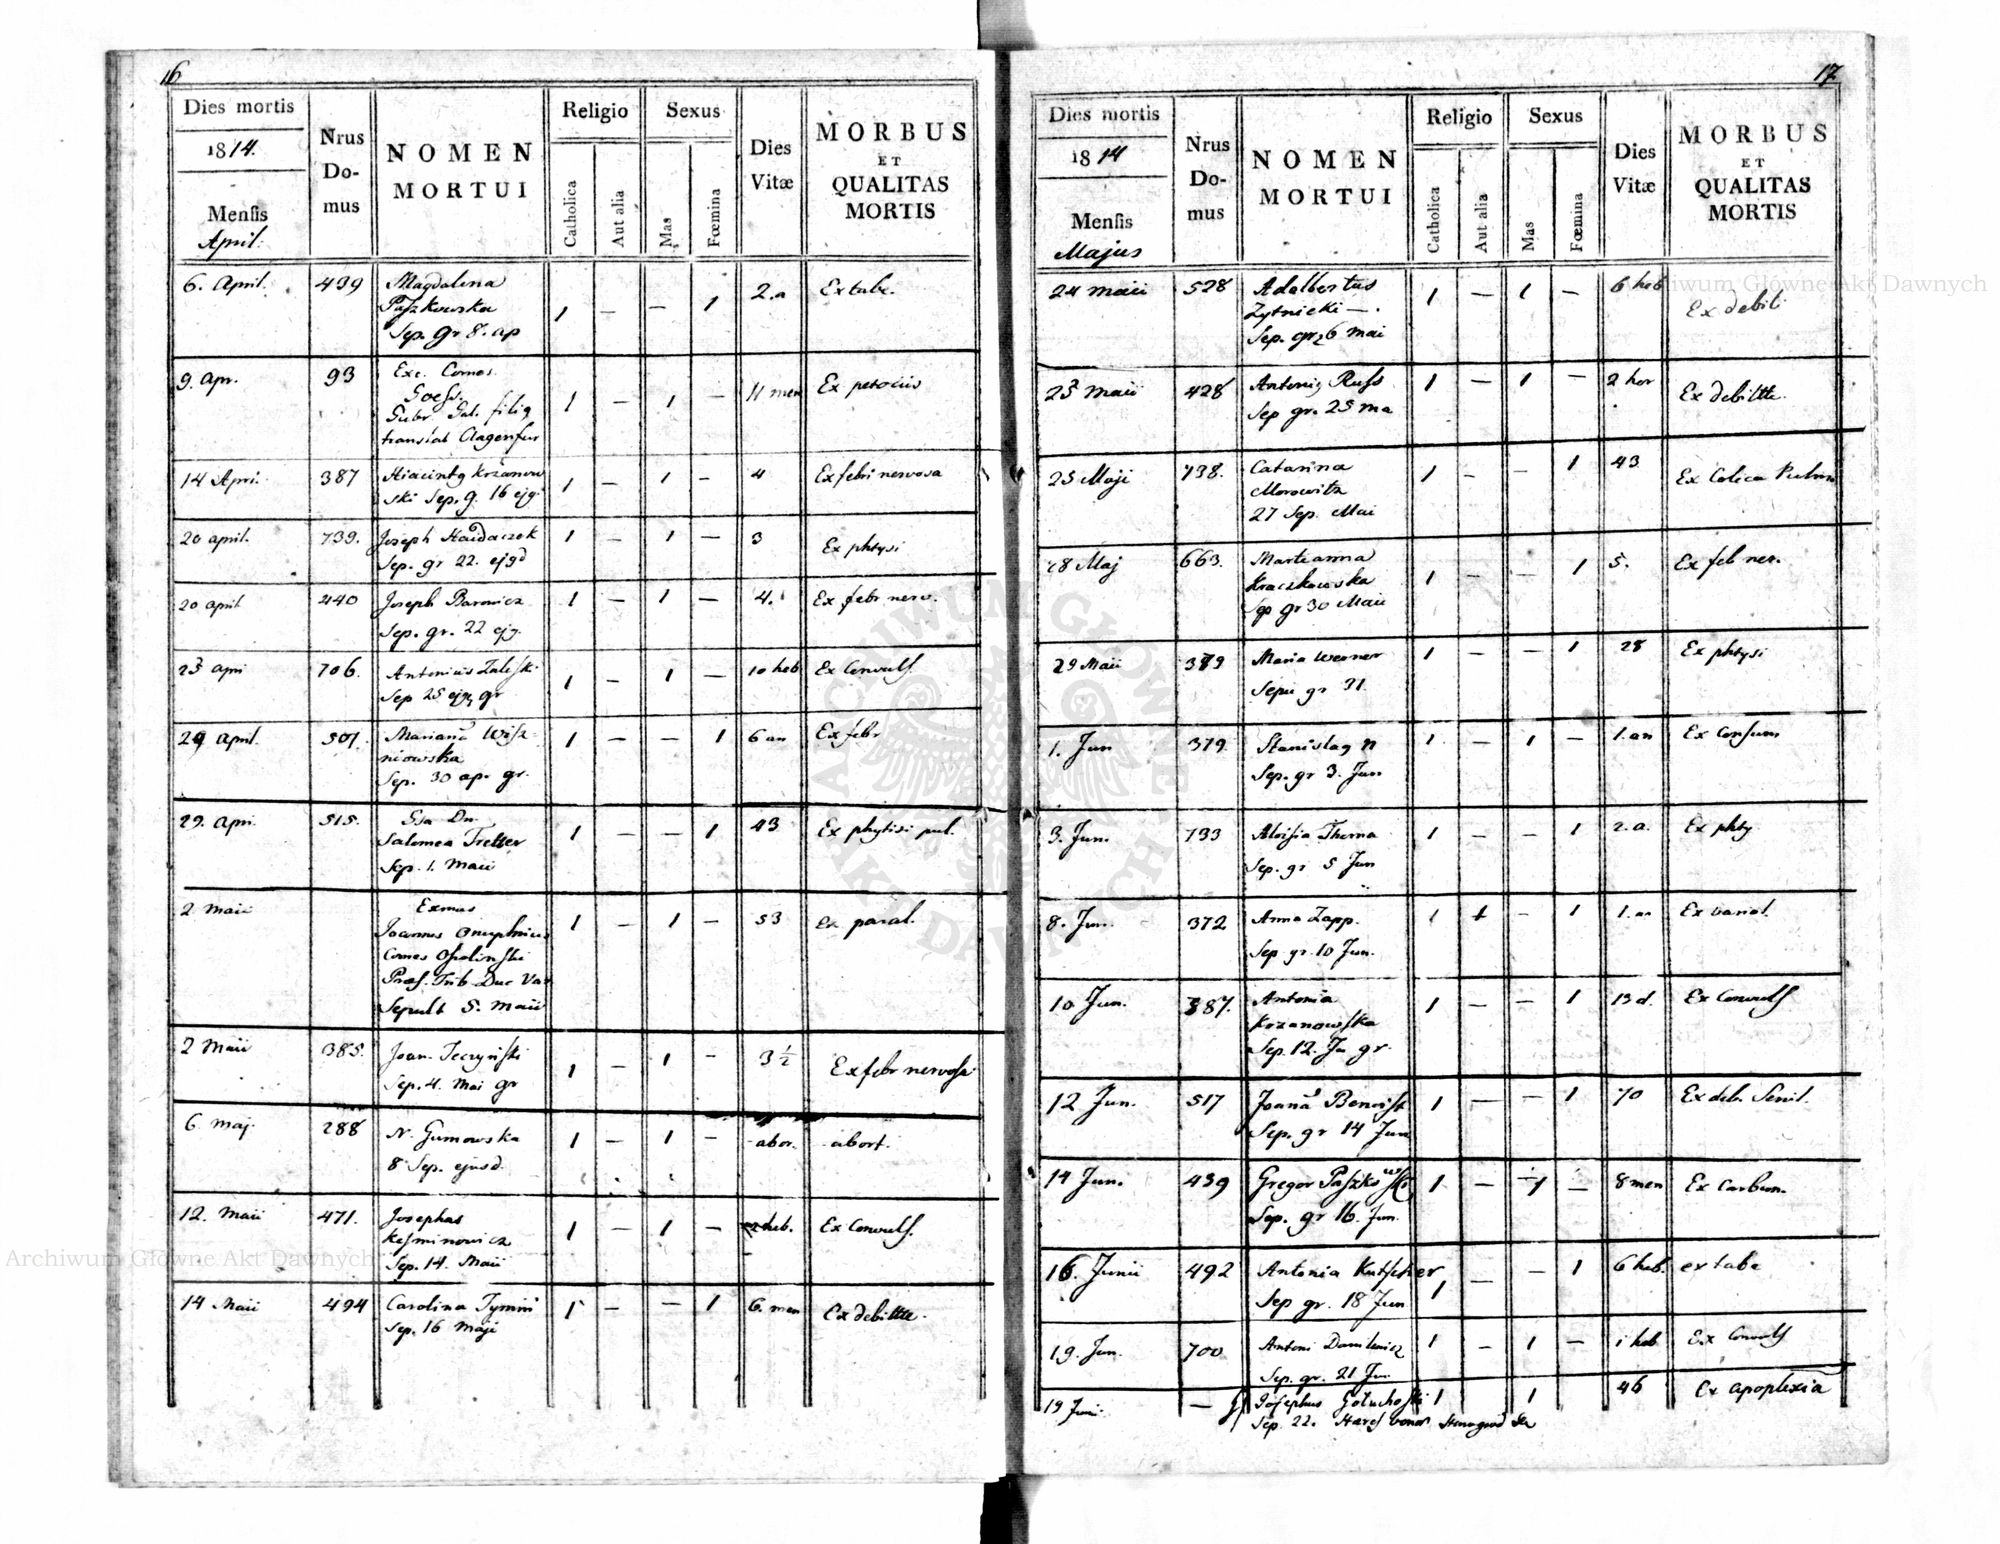 16
Dies mortis
1814.
Mensis
April.
Nrus Domus
NOMEN MORTUI
Religio
Catholica
Aut alia
Sexus
Mas
Fœmina
Dies Vitæ
MORBUS ET QUALITAS MORTIS
6. April. 439 Magdalena 1 — — 1 2.a Ex tabe.
Paszkowska
Sep. gr 8. ap
9. Apr. 93 Exc. Comes 1 — 1 — 11 men
Goess.
Gubr Gal. filig
translat Clagenfur
14 Apri. 387 Hiacintg Krzanow 1 — 1 — 4 Ex febri nervosa
ski Sep. g. 16 ejg.
20 april. 739. Joseph Haidaczek 1 — 1 — 3 Ex phtysi
Sep. gr 22. ejgd
20 april 440 Joseph Barowicz 1 — 1 — 4. Ex febr nerv.
Sep. gr. 22 ejg.
23 apri 706. Antonius Zaleski 1 — 1 — 10 heb Ex Convuls.
Sep 25 gr
29 april. 501. Mariana Wisz- 1 — — 1 6 an Ex febr
niowska
Sep. 30 ap. gr.
29. Apri. 515. Gsa Dn. 1 — — 1 43 Ex phytisi pul.
Salomea Tretter
Sep. 1. Maii
2 Maii Exmus 1 — 1 — 53 Ex paral.
Joannes Onuphrius
Comes Ossolinski
Præs. Trib Duc Var
Sepult 5. Maii
2 Maii 385. Joan. Teczynski 1 — 1 — 3 1/2 Ex febr nervosa
Sep. 4. Mai gr
6 Maj. 288 N. Gumowska 1 — 1 — abor. abort.
8 Sep. ejusd.
12. Maii 471. Josephus 1 — 1 — heb. Ex Convuls.
Kesminowicz
Sep. 14. Maii
14 Maii 494 Carolina 1 — — 1 6. men Ex debilitte.
Sep. 16 Maji
17
Dies mortis
1814
Mensis
Majus
Nrus Domus
NOMEN MORTUI
Religio
Catholica
Aut alia
Sexus
Mas
Fœmina
Dies Vitæ
MORBUS ET QUALITAS MORTIS
24 Maii 528 Adalbertus 1 — 1 — 6 heb Ex debili
Zytnicki —.
Sep. gr 26 Mai
23 Maii 428 Antonig Russ 1 — 1 — 2 hor Ex debilitte.
Sep gr. 25 Ma
25 Maji 738. Catarina 1 — — 1 43 Ex Colica
Morowitz
27 Sep. Mai
28 Maj 663. Marianna 1 — — 1 5. Ex feb ner.
Kraczkowska
Sep gr 30 Maii
29 Maii 389 Maria Werner 1 — — 1 28 Ex phtysi
Sepu gr 31
1. Jun 379. Stanislag N 1 — 1 — 1. an Ex Consum
Sep. gr 3. Jun
3. Jun. 733 Aloisia Thoma 1 — — 1 2. a. Ex phty
Sep. gr 5 Jun
8. Jun. 372 Anna Zapp. 1 + — 1 1. an Ex variol.
Sep. gr. 10 Jun.
10 Jun. 387. Antonia 1 — — 1 13 d. Ex Convuls
Krzanowska
Sep. 12. Ju gr.
12 Jun. 517 Joana Benoist 1 — — 1 70 Ex deb. Senil.
Sep. gr 14 Jun
14 Jun. 439 Gregor Paszkowski 1 — 1 — 8 men Ex Carbun.
Sep. gr 16. Jun.
16. Junii 492 Antonia Kutscher 1 — — 1 6 heb. ex tabe
Sep gr. 18 Jun
19. Jun. 700 Antoni Danilewicz 1 — 1 — 1 heb Ex Convuls
Sep. gr. 21 Ju
19 Juni — Josephus Goluchoski 1 1 46 Ex apoplexia
Sep. 22. Hæres bonor.
Archiwum Główne Akt Dawnych
Archiwum Główne Akt Dawnych
ARCHIWUM GŁÓWNE AKT DAWNYCH